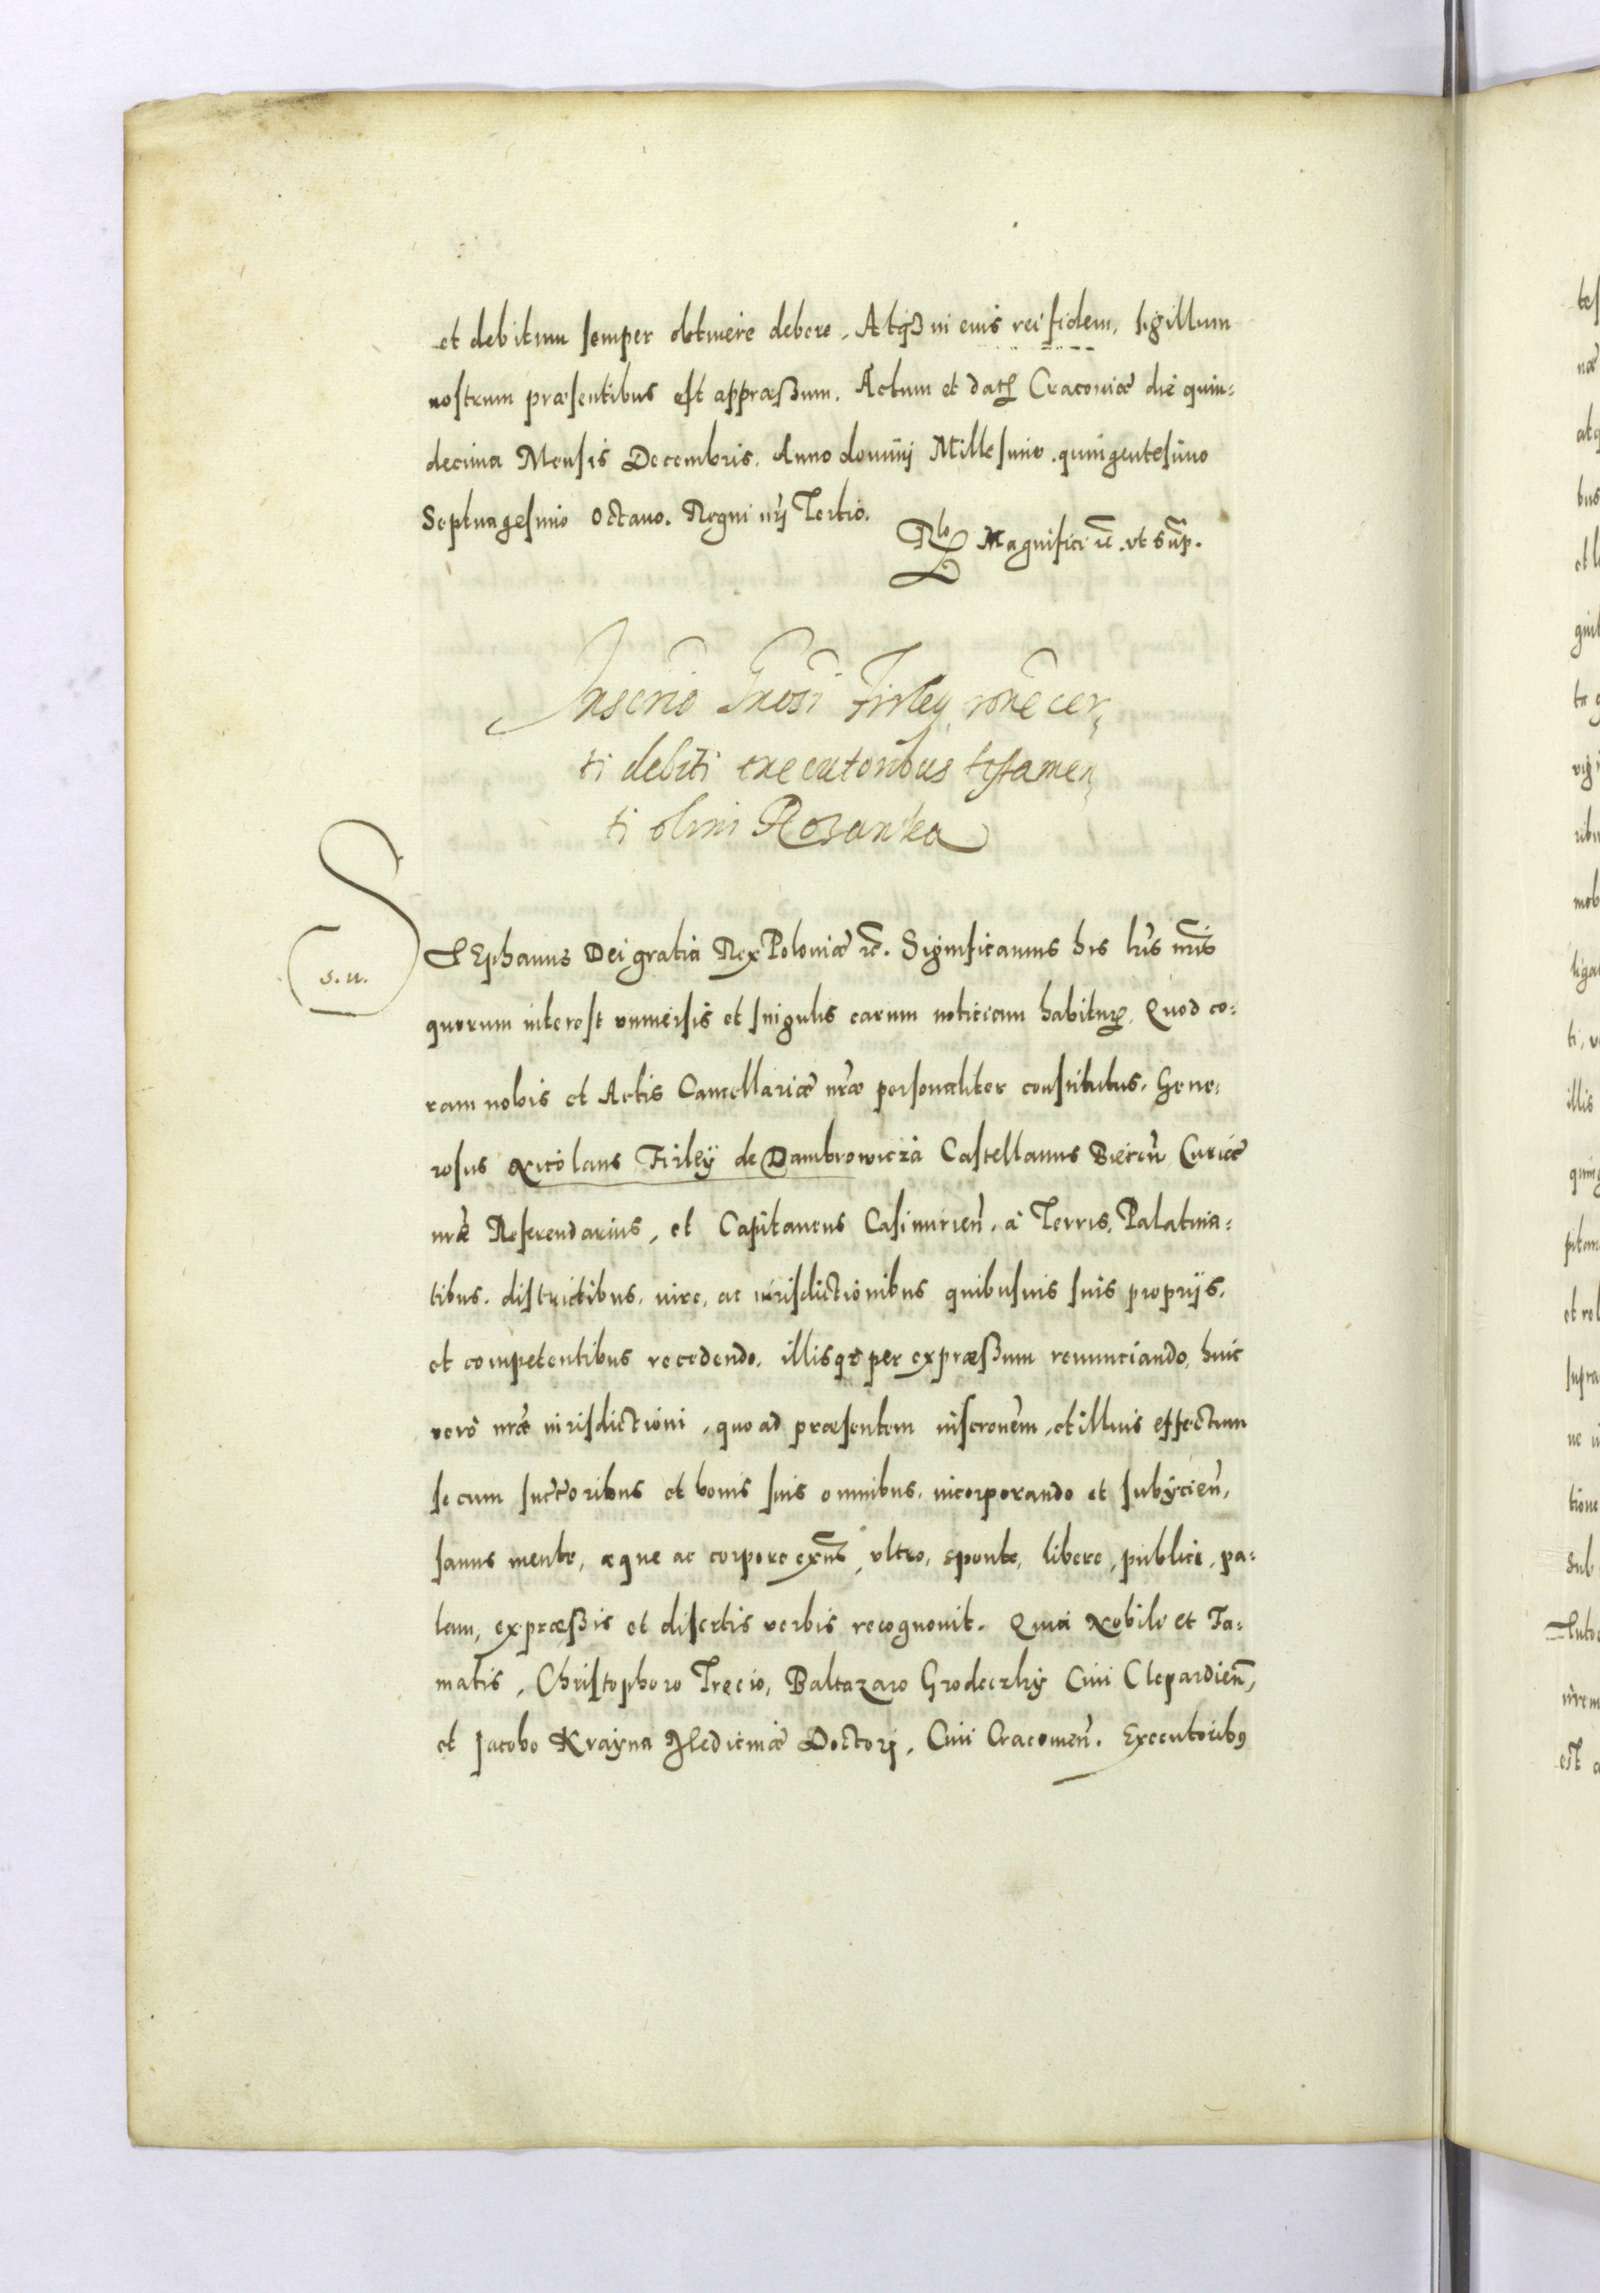 et debitum semper obtinere debere. Atqꝫ in eius rei fidem, sigillum
nostrum præsentibus est appræßum. Actum et datꝭ Cracoviæ die quin=
decima Mensis Decembris. Anno domini Millesimo. quingentesimo
Septuagesimo octauo. Regni nr̃i Tertio.
Rlo Magnifici ꝛc̃. vt supꝭ.
Inscriõ Gnosi Firley rõne cer,
ti debiti executoribus testamen,
ti olim Rozanka
STEphanus Dei gratia Rex Poloniæ ꝛc̃. Significamus his lr̃is nr̃is
s. u.
quorum interest vniuersis et singulis earum noticiam habiturꝭ. Quod co=
ram nobis et Actis Cancellariæ nr̃æ personaliter constitutus. Gene=
rosus Nicolaus Firleÿ de Dambrowicza Castellanus Biecen̄ Curiæ
nr̃æ Referendarius, et Capitaneus Casimirien̄. à Terris, Palatina=
tibus. districtibus, iure, ac iurisdictionibus quibusuis suis proprijs.
et competentibus recedendo, illisqꝫ per expræßum renunciando, huic
verò nr̃æ iurisdictioni, quo ad præsentem inscr̃onem, et illius effectum
se cum succ̃oribus et bonis suis omnibus, incorporando et subÿcien̄,
sanus mente, æque ac corpore exñs, vltro, sponte, libere, publicè, pa=
lam, expræßis et disertis verbis recognouit. Quia Nobili et Fa=
matis, Christophoro Trecio, Baltazaro Grodeczkÿ Ciui Clepardien̄,
et Jacobo Krayna Medicinæ Doctorj, Ciui Cracouien̄. Executoribꝰ